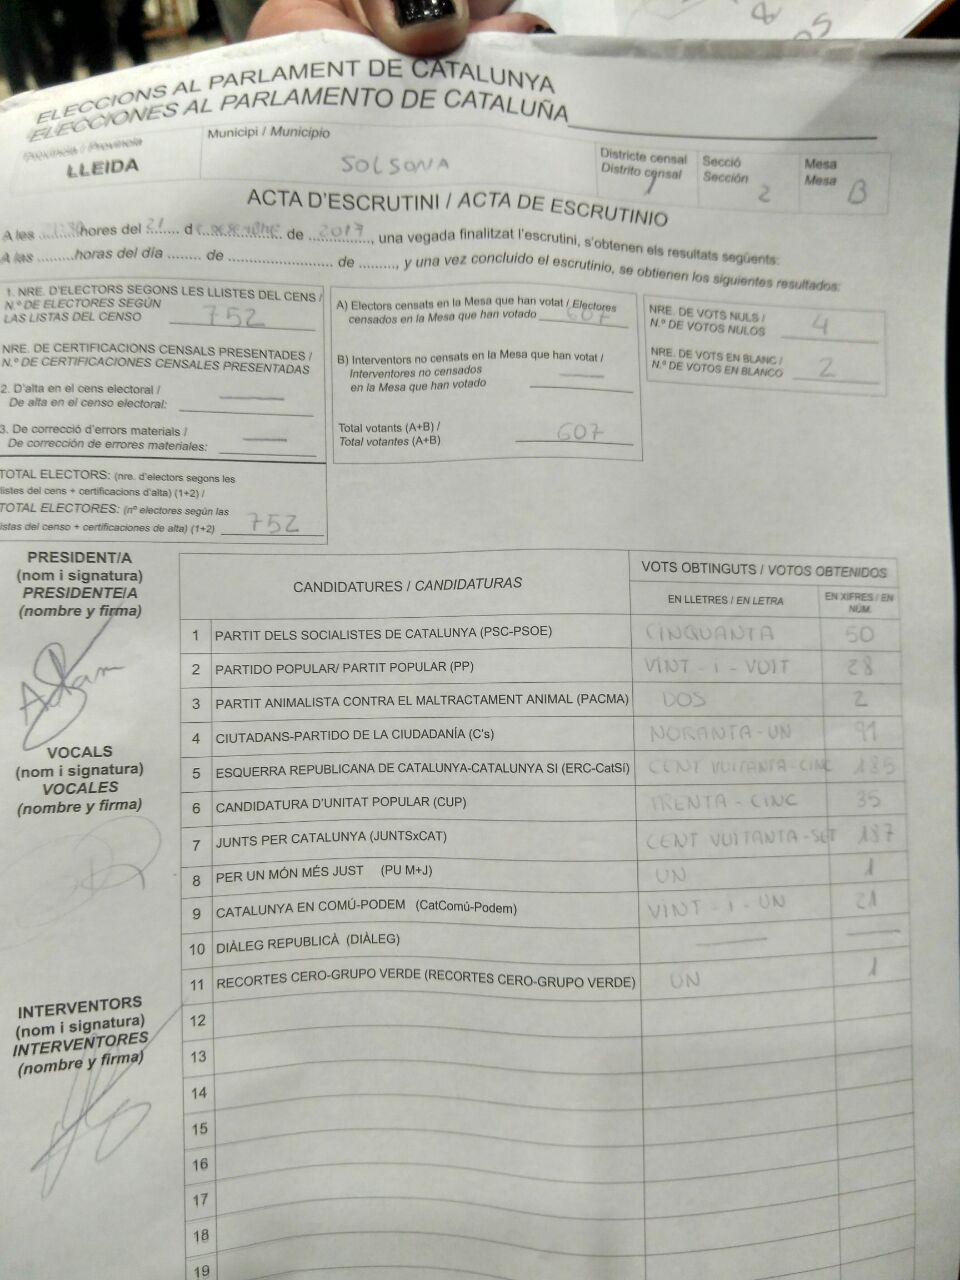 ELECCIONS AL PARLAMENT DE CATALUNYA
ELECCIONES AL PARLAMENTO DE CATALUÑA
Província / Provincia
LLEIDA
Municipi / Municipio
SOLSONA
Districte censal
Distrito censal
1
Secció
Sección
2
Mesa
Mesa
B
ACTA D'ESCRUTINI / ACTA DE ESCRUTINIO
A les ........hores del 21 d desembre de 2017, una vegada finalitzat l'escrutini, s'obtenen els resultats següents:
A las ........horas del día ....... de ....................... de ........, y una vez concluido el escrutinio, se obtienen los siguientes resultados:
1. NRE. D'ELECTORS SEGONS LES LLISTES DEL CENS /
N.º DE ELECTORES SEGÚN
LAS LISTAS DEL CENSO 752
NRE. DE CERTIFICACIONS CENSALS PRESENTADES /
N.º DE CERTIFICACIONES CENSALES PRESENTADAS
2. D'alta en el cens electoral /
De alta en el censo electoral: —
3. De correcció d'errors materials /
De corrección de errores materiales: —
TOTAL ELECTORS: (nre. d'electors segons les
listes del cens + certificacions d'alta) (1+2) /
TOTAL ELECTORES: (nº electores según las
listas del censo + certificaciones de alta) (1+2) 752
A) Electors censats en la Mesa que han votat / Electores
censados en la Mesa que han votado 607
B) Interventors no censats en la Mesa que han votat /
Interventores no censados
en la Mesa que han votado —
Total votants (A+B) /
Total votantes (A+B) 607
NRE. DE VOTS NULS /
N.º DE VOTOS NULOS 4
NRE. DE VOTS EN BLANC /
N.º DE VOTOS EN BLANCO 2
PRESIDENT/A
(nom i signatura)
PRESIDENTE/A
(nombre y firma)
VOCALS
(nom i signatura)
VOCALES
(nombre y firma)
INTERVENTORS
(nom i signatura)
INTERVENTORES
(nombre y firma)
CANDIDATURES / CANDIDATURAS
VOTS OBTINGUTS / VOTOS OBTENIDOS
EN LLETRES / EN LETRA
EN XIFRES / EN NÚM.
1 PARTIT DELS SOCIALISTES DE CATALUNYA (PSC-PSOE) CINQUANTA 50
2 PARTIDO POPULAR/ PARTIT POPULAR (PP) VINT-I-VUIT 28
3 PARTIT ANIMALISTA CONTRA EL MALTRACTAMENT ANIMAL (PACMA) DOS 2
4 CIUTADANS-PARTIDO DE LA CIUDADANÍA (C's) NORANTA-UN 91
5 ESQUERRA REPUBLICANA DE CATALUNYA-CATALUNYA SI (ERC-CatSí) CENT VUITANTA-CINC 185
6 CANDIDATURA D'UNITAT POPULAR (CUP) TRENTA-CINC 35
7 JUNTS PER CATALUNYA (JUNTSxCAT) CENT VUITANTA-SET 187
8 PER UN MÓN MÉS JUST (PU M+J) UN 1
9 CATALUNYA EN COMÚ-PODEM (CatComú-Podem) VINT-I-UN 21
10 DIÀLEG REPUBLICÀ (DIÀLEG) — —
11 RECORTES CERO-GRUPO VERDE (RECORTES CERO-GRUPO VERDE) UN 1
12
13
14
15
16
17
18
19